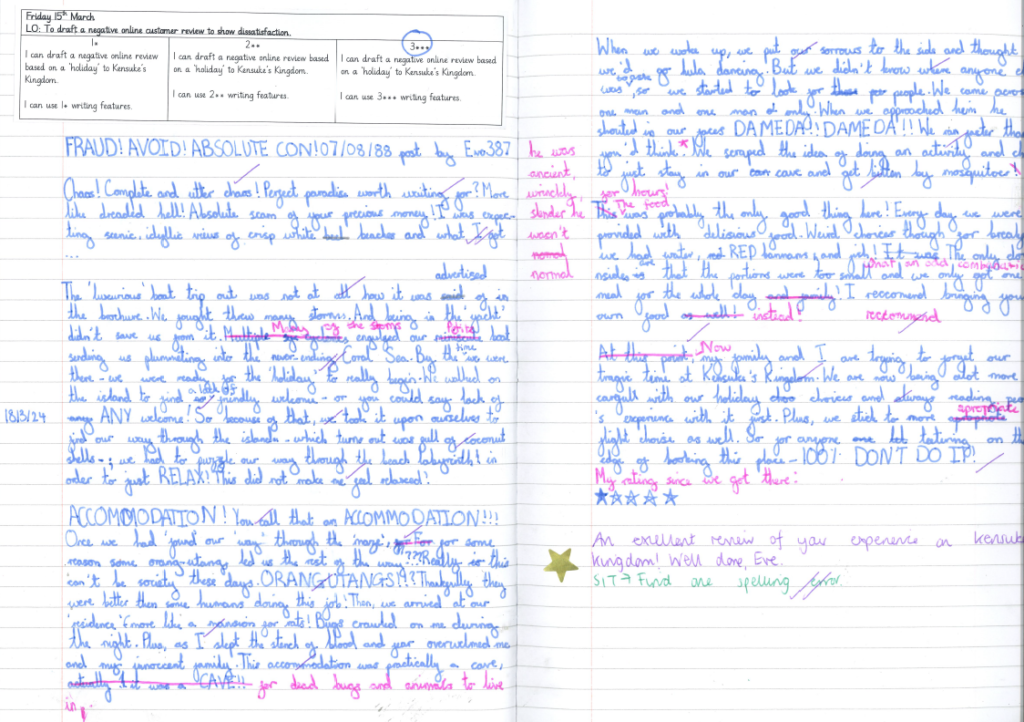 Friday 15th March
LO: To draft a negative online customer review to show dissatisfaction.
1*
I can draft a negative online review based on a 'holiday' to Kensuke's Kingdom.
I can use 1* writing features.
2**
I can draft a negative online review based on a 'holiday' to Kensuke's Kingdom.
I can use 2** writing features.
3***
I can draft a negative online review based on a 'holiday' to Kensuke's Kingdom.
I can use 3*** writing features.
FRAUD! AVOID! ABSOLUTE CON! 07/08/88 post by Eva387
Chaos! Complete and utter chaos! Perfect paradies worth waiting for? More
like dreaded hell! Absolute scam of your precious money! I was expec-
ting scenic idyllic views of crisp white beaches and what I got
...
advertised
The 'luxurious' boat trip out was not at all how it was said of in
the borchure. We fought threw many storms. And being in the 'yacht'
didn't save us from it. Many of the storms engulfed our boat
sending us plummeting into the never-ending Coral Sea. By the time we were
there - we were ready for the 'holiday' to really begin. We walked on
the island to find a lack of friendly welcome - or you could say lack of
any ANY welcome! So because of that, we took it upon ourselves to
18/3/24
find our way through the island - which turns out was full of coconut
shells -; we had to puzzle our way through the beach labyrinth! in
order to just RELAX! This did not make me feel relaxed!
ACCOMMODATION! You call that an ACCOMMODATION!!!
Once we had 'found' our 'way' through the 'maze', for some
reason some orang-utangs led us the rest of the way??? Really is this
can't be society these days. ORANGUTANGS!?! Thankfully they
were better then some humans doing this job! Then, we arrived at our
'residence' (more like a mansion for rats! Bugs crawled on me during
the night. Plus, as I slept the stench of blood and fear overwelmed me
and my innorcent family. This accomodation was practically a cave,
actually! it was a CAVE!! for dead bugs and animals to live
in.
When we woke up, we put our sorrows to the side and thought
we'd go hula dancing. But we didn't know where anyone
was, so we started to look for people. We came across
one man and one man only. When we approached him he
shouted in our faces DAMEDA!! DAMEDA!!!
you'd think.* We scraped the idea of doing an activity and
to just stay in our cave and get bitten by mosquitoes
for hours!
he was
ancient,
wrinckly,
slender he
wasn't
normal
normal
The food
This was probably the only good thing here! Every day we were
provided with delisious food. Weird choices though for
we had water, RED bannanas, and fish! what an odd combination It was The only
nsides are that the portions were too small and we only got one
meal for the whole day and family! I reccomend bringing you
own food as well! instead!
reckommend
At this point, Now my family and I are trying to forget our
tragic time at Kensuke's Kingdom. We are now being alot more
carefull with our holiday choices and always reading
's expirence with it first. Plus, we stick to more apropriate
flight choise as well. So for anyone on the
edge of booking this place - 100% DON'T DO IT!
My rating since we got there:
★☆☆☆☆
An excellent review of your experience on Kensuke
Kingdom! Well done, Eve.
SIT → Find one spelling error.